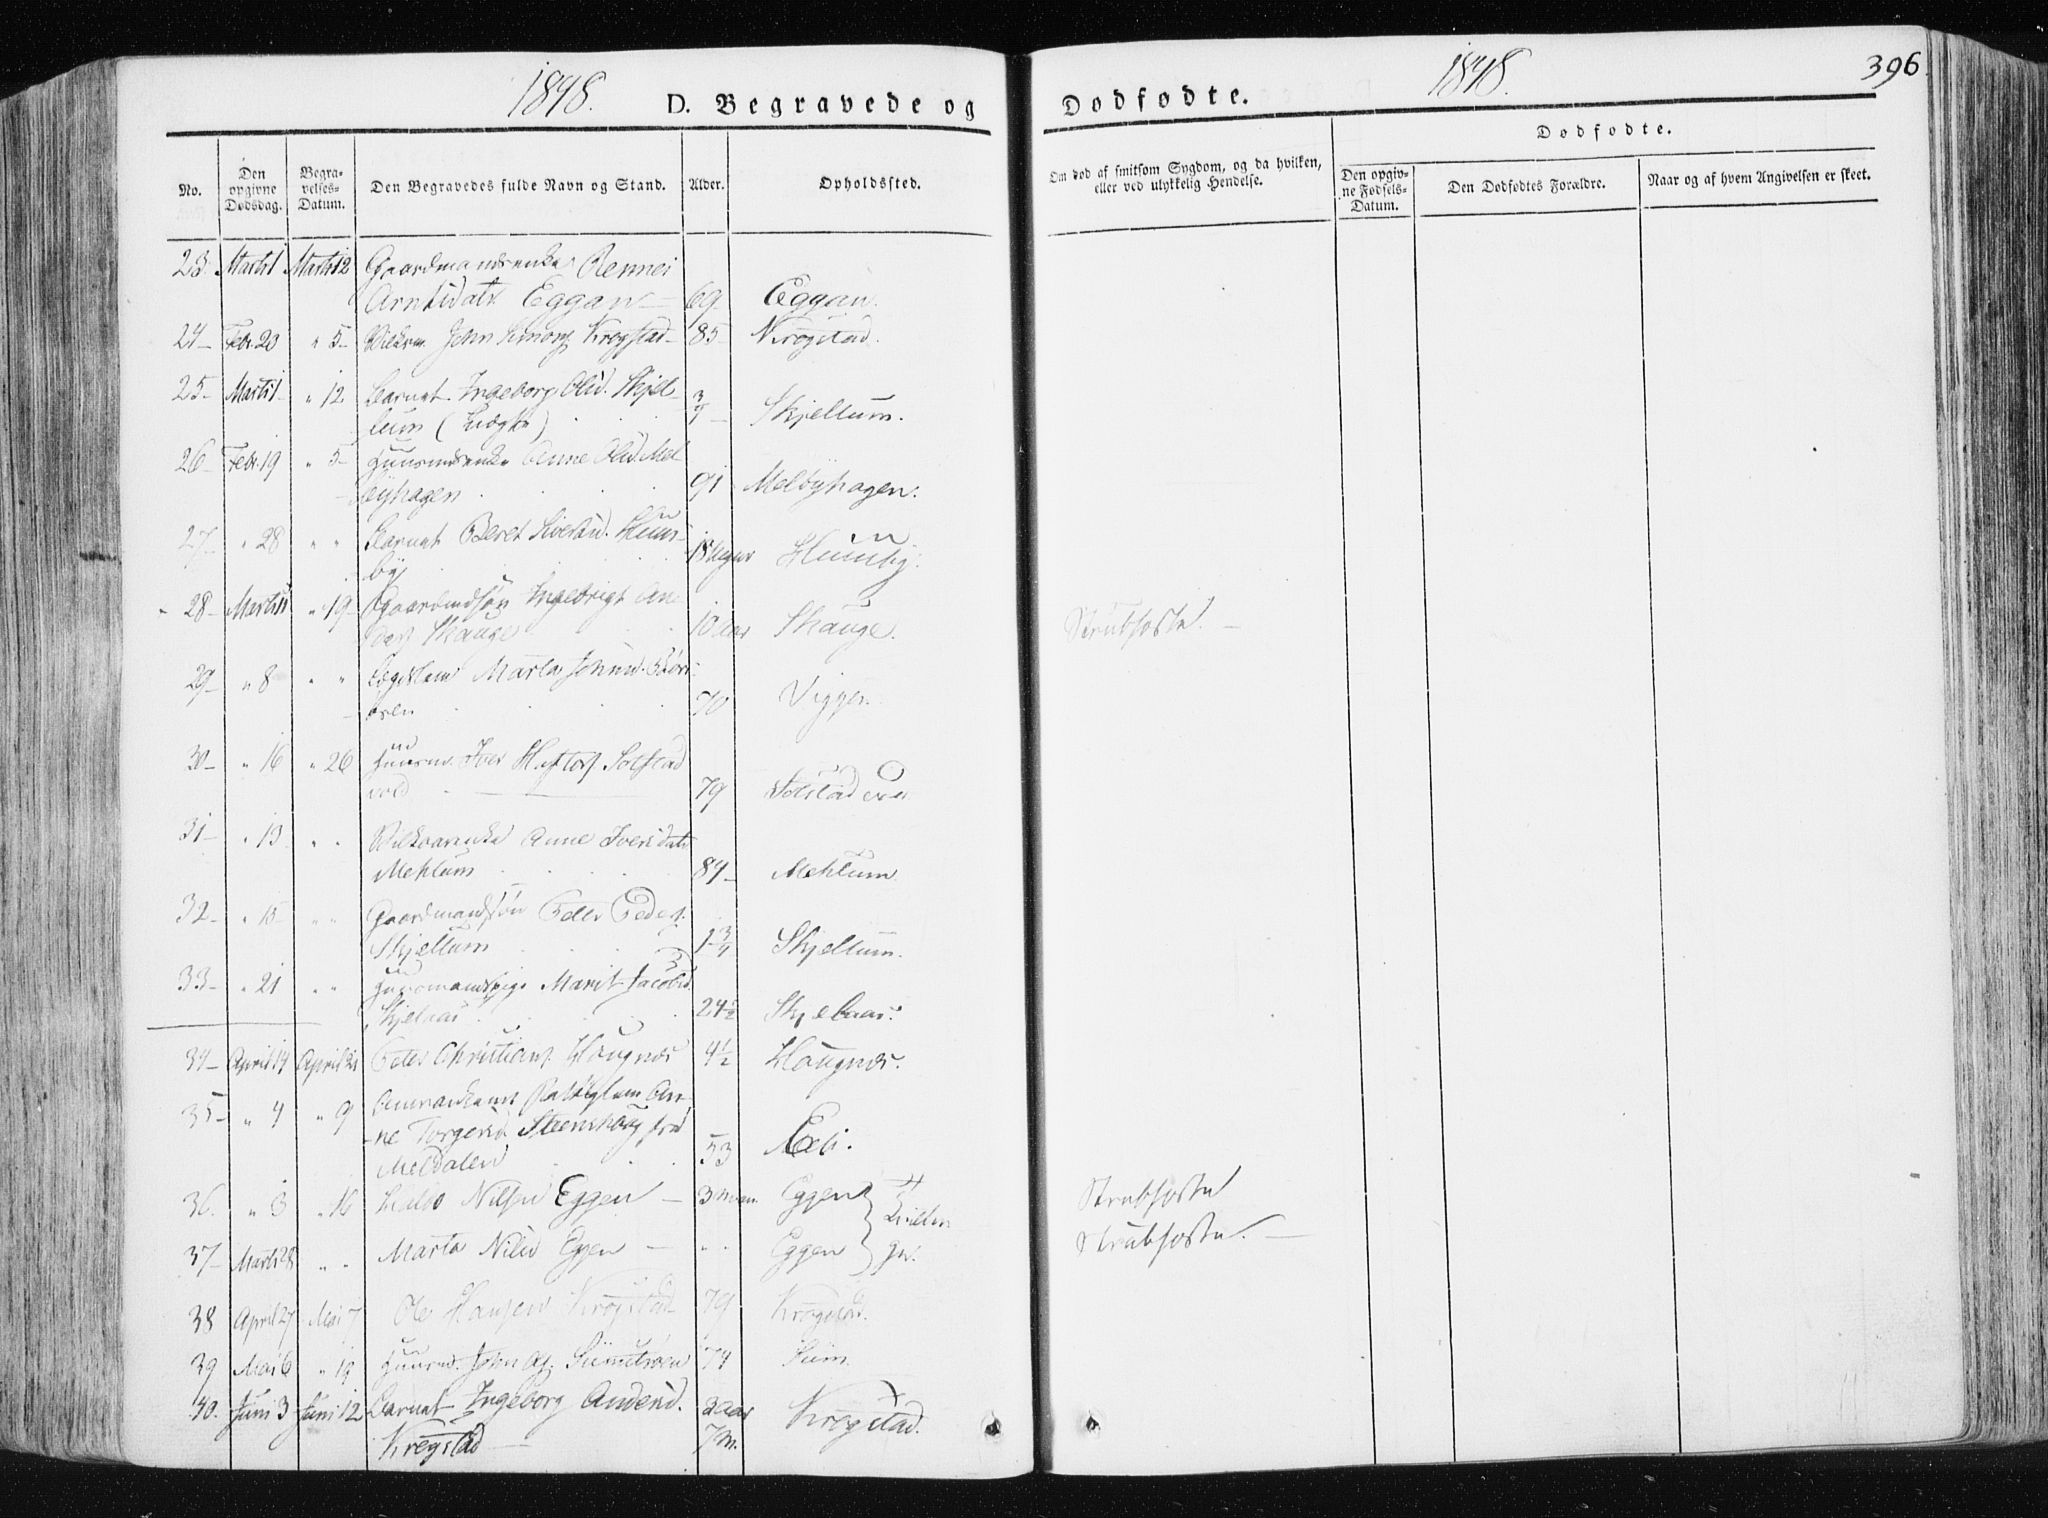 1848.
1848.
396
D. Begravede og
Dødfødte.
No.
Den opgivne Dødsdag.
Begravelses-Datum.
Den Begravedes fulde Navn og Stand.
Alder.
Opholdssted.
Om død af smitsom Sygdom, og da hvilken, eller ved ulykkelig Hendelse.
Dødfødte.
Den opgivne Fødsels-Datum.
Den Dødfødtes Forældre.
Naar og af hvem Angivelsen er skeet.
23. Marts 1 Marts 12 Gaardmandsenke Rennei
Arntsdatr Eggan — 69 Eggan.
24 — Febr. 20 " 5 — John Simons. Krogstad — 85 Krogstad.
25 — Marts 1 " 12 Barnet Ingeborg Olsd. Skjel-
lum 3/4 — Skjellum.
26 — Febr. 19 " 5 — Huusmdsenke Anne Olsd. Mel
byhagen 91 Melbyhagen.
27 — " 28 " " Barnet Beret Siversd. Huus-
by 18 Uger Huusby.
28 — Marts 11 " 19 — Gaardmdsøn Ingebrigt An
ders. Skauge 10 aar Skauge. Strubhoste. —
29 — " 8 " " Lægdslem Marta Johnsd. Bør-
øren 70 Viggen.
30 — " 16 " 26 Huusm. Iver Solstad
vold 79 Solstad
31 — " 13 " " Anne Iversdatr
Mehlum 84 — Mehlum
32 — " 15 " " Gaardmandssøn Peder Peders.
Skjellum 1 3/4 Skjellum.
33 — " 21 " " Huusmandspige Marit Jacobsd.
Skjelaas 24 1/2 Skjelaas.
34 — April 14 April 21 Peder Christians. Haugnæs 4 1/2 Haugnæs.
35 — " 4 " 9 An-
ne Torgersd. Steenshaug fra
Meldalen 53 Eli.
36. " 3 " 16 Nilsen Eggen — 3 Eggen Strubhoste
37 — Marts 28 " " Marta Nilsd Eggen — " " Eggen Strubhoste. —
38 April 27 Mai 7 Ole Hansen Krogstad 79 Krogstad.
39 Mai 6 " 14 Huusmd. John 74
40. Juni 3 Juni 12 Barnet Ingeborg Andersd. 2 Aar Krogstad.
Krogstad — 7 m.